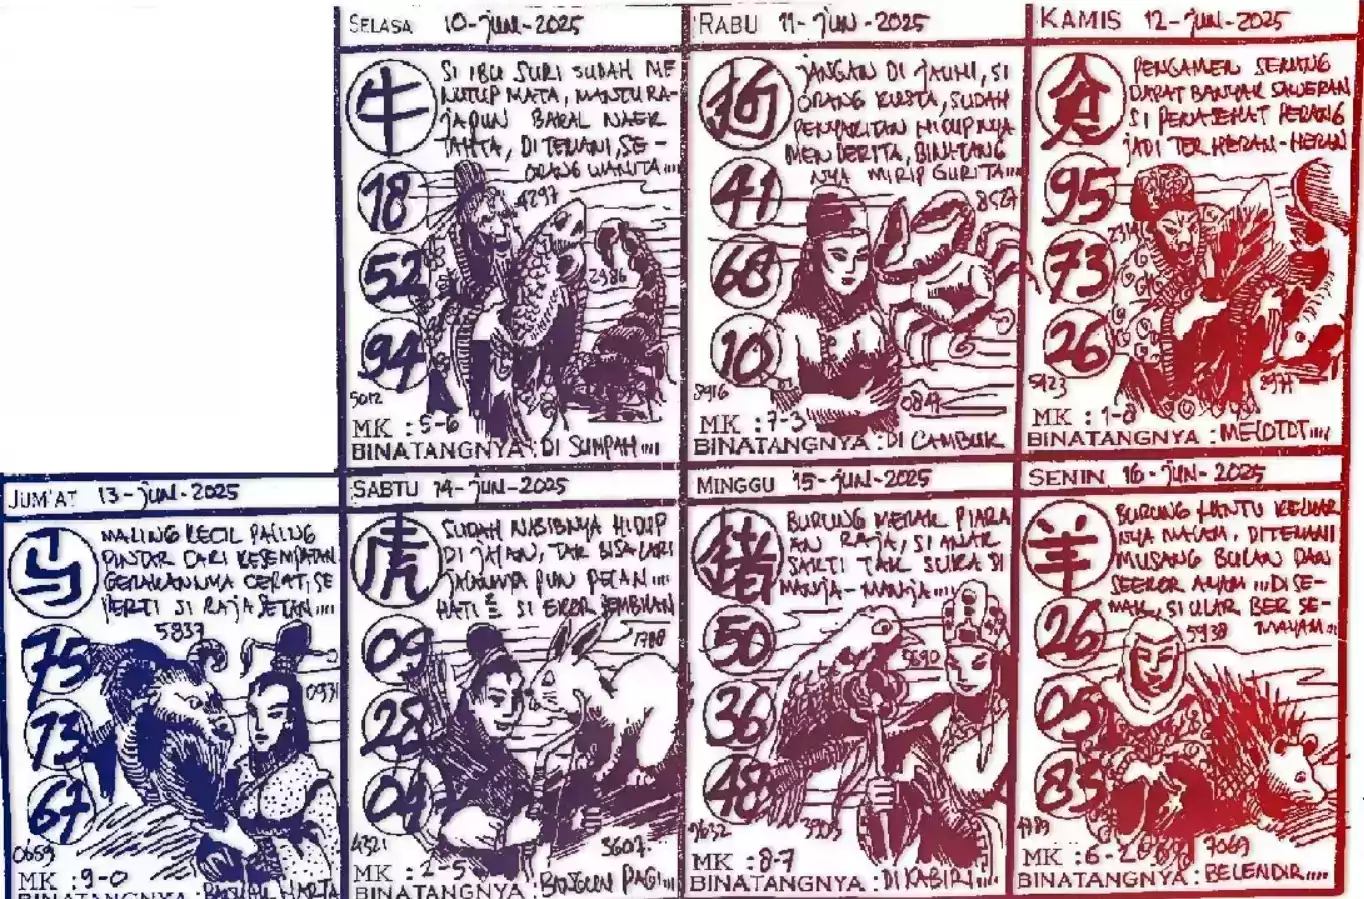 SELASA 10-JUN-2025
牛
SI IBU SURI SUDAH ME
NUTUP MATA, MANTU RA-
JAPUN BAKAL NAEK
TAHTA, DITEMANI, SE-
ORANG WANITA....
18
52
94
4297
2986
5012
MK : 5-6
BINATANGNYA : DI SUMPAH....
RABU 11-JUN-2025
狗
JANGAN DI JAUHI, SI
ORANG KUSTA, SUDAH
PENYAKITAN HIDUPNYA
MENDERITA, BINATANG
NYA MIRIP GURITA....
41
68
10
8527
8916
0847
MK : 7-3
BINATANGNYA : DI CAMBUK
KAMIS 12-JUN-2025
PENGAMEN SERING
DAPAT BANYAK SAWERAN
SI PENASEHAT PERANG
JADI TERHERAN-HERAN
95
73
26
5423
MK : 1-8
BINATANGNYA : MELOTOT....
JUM'AT 13-JUN-2025
马
MALING KECIL PALING
PINTAR CARI KESEMPATAN
GERAKANNYA CEPAT, SE
PERTI SI RAJA SETAN....
5837
75
73
67
0931
0659
MK : 9-0
BINATANGNYA : HARTA
SABTU 14-JUN-2025
虎
SUDAH NASIBNYA HIDUP
DI JALAN, TAK BISA LARI
JALANNYA PUN PELAN....
HATI SI EKOR JEMBILAN
09
28
04
1788
4321
5607
MK : 2-5
BINATANGNYA : BANGUN PAGI....
MINGGU 15-JUN-2025
猪
BURUNG MERAK PIARA
AN RAJA, SI ANAK
SAKTI TAK SUKA DI
MANJA-MANJA....
50
36
48
5690
9632
MK : 8-7
BINATANGNYA : DI KABIRI....
SENIN 16-JUN-2025
羊
BURUNG HANTU KELUAR
NYA MALAM, DITEMANI
MUSANG BULAN DAN
SEEKOR AYAM....DI SE-
MAK, SI ULAR BER SE-
MAYAM..
26
05
83
5938
7069
MK : 6-2
BINATANGNYA : BELENDIR....